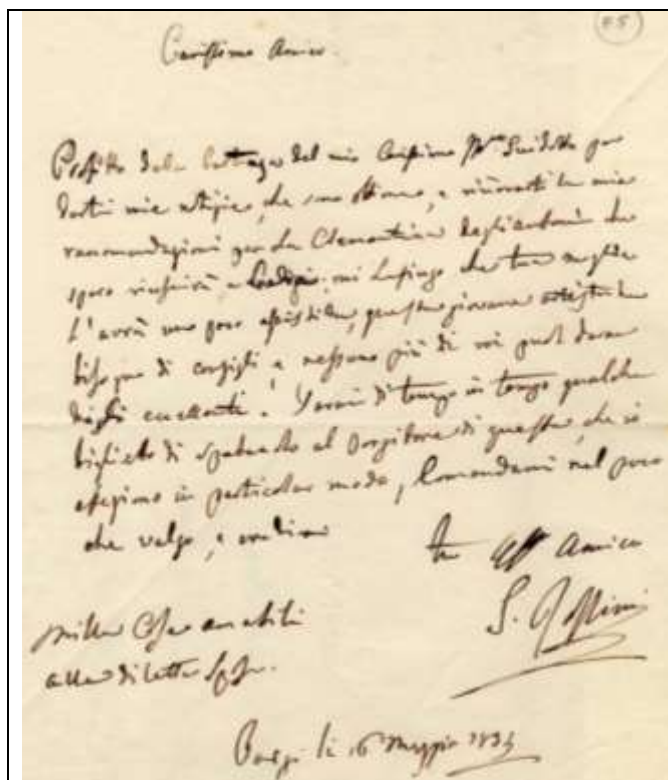 Carissimo Amico.
Profitto della partenza del mio Carissimo Guidotti per
darti mie notizie, che sono ottime, e rinnovarti le mie
raccomandazioni per la Clementina degli Antoni che
spero riuscirà a Londra; mi lusingo che tua moglie
l'avrà un poco assistita, questa giovane artista ha
bisogno di consigli e nessuno più di voi puol darne
degli eccellenti. Darai di tempo in tempo qualche
biglietto di spettacolo al porgitore di questa, che io
stimo in particolar modo, Comandami nel poco
che valgo, e credimi
tuo Aff Amico
G. Rossini
mille Cose amabili
alla diletta Sposa.
Parigi li 16 Maggio 1834